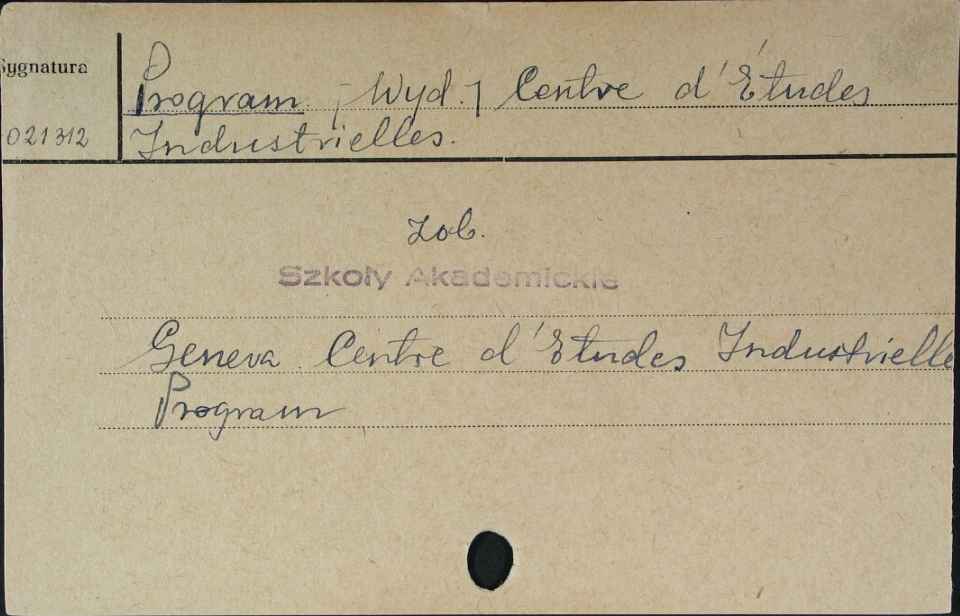 Sygnatura
Program [Wyd.] Centre d'Études
021312
Industrielles.
zob.
Szkoły Akademickie
Geneva. Centre d'Etudes Industrielle
Program